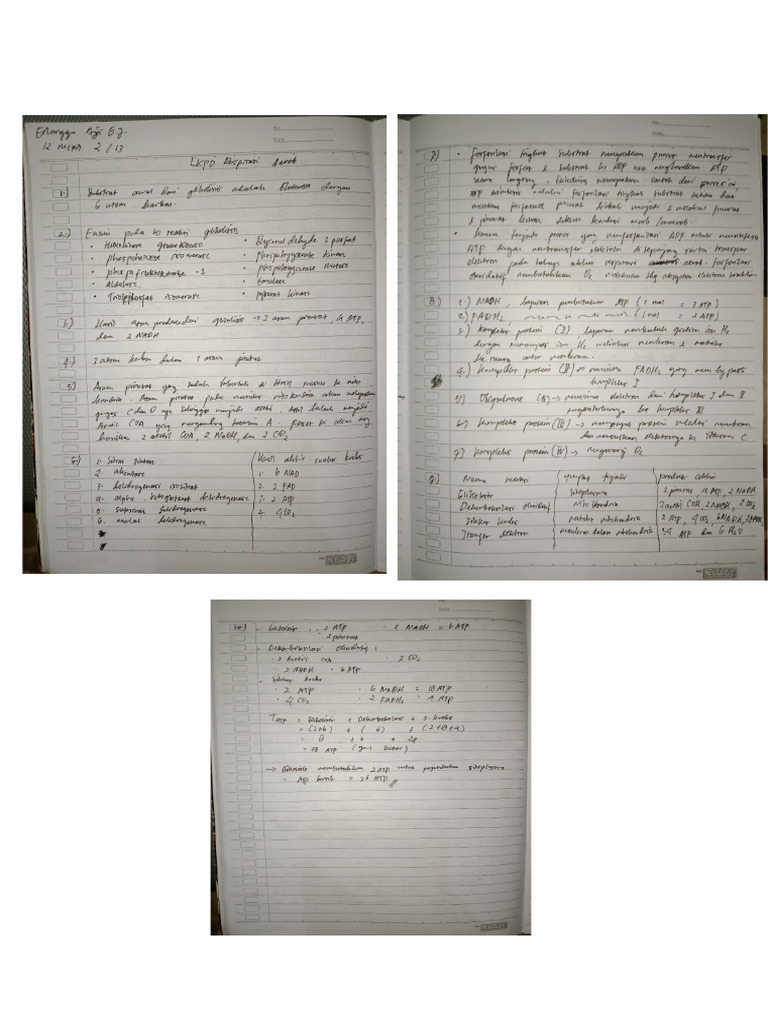 Erlangga Aji
12 MIPA 2 / 13
LKPD Respirasi Aerob
1.) Substrat awal dari glikolisis adalah Glukosa dengan
6 atom karbon.
2.) Enzim pada 10 reaksi glikolisis
• Heksokinase • Gliseraldehyde 3 fosfat
• phosphohexose isomerase • Phospoglycerate kinase
• phosphofructokinase -1 • phospoglycerate mutase
• Aldolase • Enolase
• Triosephosfat isomerase • pyruvat kinase
3.) Hasil dari glikolisis → 2 asam piruvat, 4 ATP,
dan 2 NADH
4.) 3 atom karbon dalam 1 asam piruvat
5.) Asam piruvat yang sudah terbentuk di masuk ke mito
kondria. Asam piruvat pada matriks mitokondria akan
gugus sehingga menjadi asetil. Asetil
Asetil COA yang mengandung koenzim A. Proses ini
2 asetil COA, 2 NADH, dan 2 CO2
6.) 1. Sitrat sintase
2. akonitase
3. dehidrogenase isositrat
4. alpha - ketoglutarat dehidrogenase
5. suksinat dehidrogenase
6. malat dehidrogenase
Hasil akhir reaksi krebs
1. 6 NAD
2. 2 FAD
3. 2 ATP
4. 4CO2
7.) • Fosforilasi tingkat substrat merupakan proses mentransfer
gugus fosfat substrat ke ADP utk menghasilkan ATP
secara langsung. Glikolisis merupakan contoh dari proses ini,
ATP fosforilasi tingkat substrat ketika dua
molekul fosfoenol piruvat diubah menjadi 2 molekul piruvat
piruvat kinase dalam kondisi aerob/anaerob.
• proses yang memfosforilasi ADP untuk
ATP dengan mentransfer elektron di sepanjang rantai transpor
elektron pada tahap akhir respirasi aerob. Fosforilasi
oksidatif membutuhkan O2 sbg akseptor elektron terakhir
8.) 1.) NADH, pembentukan ATP (1 mol = 3 ATP)
2.) FADH2 (1 mol = 2 ATP)
3.) Kompleks protein (I) ion H2
dengan ion H2 melintasi membran matriks
ke ruang antar membran.
4.) Kompleks protein (II) → menerima FADH2 yang mem bypass
kompleks I
5.) Ubiquinone (Q) → menerima elektron dari kompleks I dan II
ke kompleks III
6.) Kompleks protein (III) → proton melalui membran
dan meneruskan elektronnya ke sitokrom C
7.) Kompleks protein (IV) → O2
9.) Nama reaksi | tempat terjadi | produk akhir
Glikolisis | sitoplasma | 2 piruvat, 4 ATP, 2 NADH
Dekarboksilasi oksidatif | Mitokondria | 2 asetil COA, 2 NADH, 2 CO2
Siklus krebs | matriks mitokondria | 2 ATP, 4 CO2, 6 NADH, 2 FADH2
Transpor elektron | membran dalam mitokondria | 34 ATP dan 6 H2O
10.) - Glikolisis : · 2 ATP · 2 NADH = 6 ATP
· 2 piruvat
- Dekarboksilasi Oksidatif :
· 2 Asetil COA · 2 CO2
· 2 NADH = 6 ATP
- Siklus krebs
· 2 ATP · 6 NADH = 18 ATP
· 4 CO2 · 2 FADH2 = 4 ATP
Total = Glikolisis + Dekarboksilasi + S. krebs
= (2+6) + (6) + (2+18+4)
= 8 + 6 + 24
= 38 ATP
→ Glikolisis membutuhkan 2 ATP untuk sitoplasma
= ATP bersih = 36 ATP //